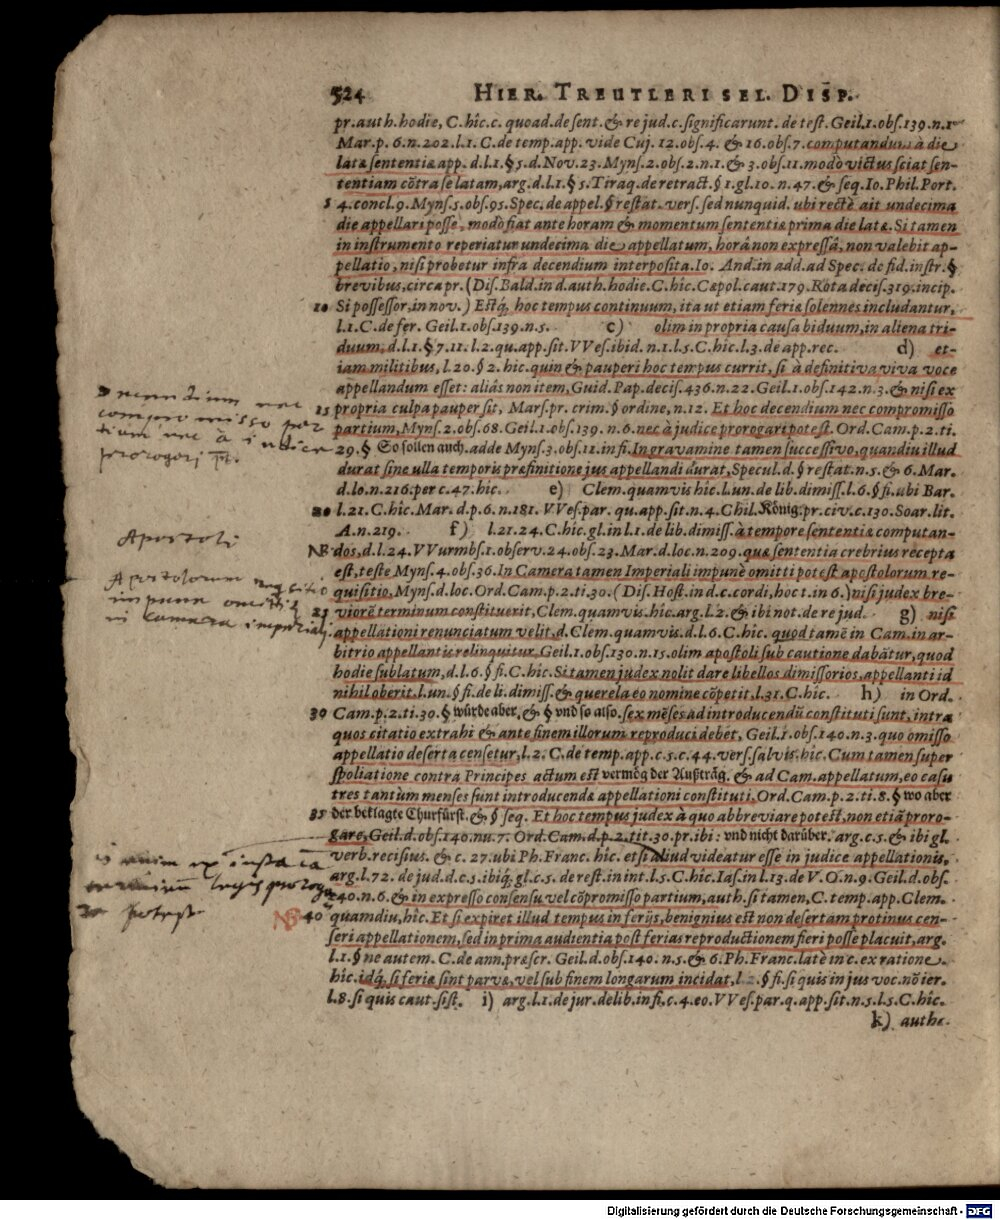 524 HIER. TREUTLERI SEL. DISP.
pr. auth. hodie, C. hîc. c. quoad. de sent. & re jud. c. significarunt. de test. Geil. 1. obs. 139. n. 1.
Mar. p. 6. n. 202. l. 1. C. de temp. app. vide Cuj. 12. obs. 4. & 16. obs. 7. computandum à die
latæ sententiæ app. d. l. 1. § 5. d. Nov. 23. Myns. 2. obs. 2. n. 1. & 3. obs. 11. modò victus sciat sen-
tentiam cõtra se latam, arg. d. l. 1. § 5. Tiraq. de retract. § 1. gl. 10. n. 47. & seq. Io. Phil. Port.
5 4. concl. 9. Myns. 5. obs. 95. Spec. de appel. § restat. vers. sed nunquid. ubi rectè ait undecima
die appellari posse, modò fiat ante horam & momentum sententiæ prima die latæ. Si tamen
in instrumento reperiatur undecima die appellatum, horâ non expressâ, non valebit ap-
pellatio, nisi probetur infra decendium interposita. Io. And. in add. ad Spec. de fid. instr. §
brevibus, circa pr. (Dis. Bald. in d. auth. hodie. C. hîc. Cæpol. caut. 179. Rota decis. 319. incip.
10 Si possessor, in nov.) Estq́, hoc tempus continuum, ita ut etiam feriæ solennes includantur,
l. 1. C. de fer. Geil. 1. obs. 139. n. 5. c) olim in propria causa biduum, in aliena tri-
duum, d. l. 1. § 7. 11. l. 2. qu. app. sit. VVes. ibid. n. 1. l. 5. C. hîc. l. 3. de app. rec. d) et-
iam militibus, l. 20. § 2. hîc. quin & pauperi hoc tempus currit, si à definitiva viva voce
appellandum esset: aliás non item, Guid. Pap. decis. 436. n. 22. Geil. 1. obs. 142. n. 3. & nisi ex
15 propria culpa pauper sit, Mars. pr. crim. § ordine, n. 12. Et hoc decendium nec compromisso
partium, Myns. 2. obs. 68. Geil. 1. obs. 139. n. 6. nec à judice prorogari potest. Ord. Cam. p. 2. ti.
29. § So sollen auch. adde Myns. 3. obs. 11. in fi. In gravamine tamen successivo, quandiu illud
durat sine ulla temporis præfinitione jus appellandi durat, Specul. d. § restat. n. 5. & 6. Mar.
d. lo. n. 216. per c. 47. hîc. e) Clem. quamvis hîc. l. un. de lib. dimiss. l. 6. § fi. ubi Bar.
20 l. 21. C. hîc. Mar. d. p. 6. n. 181. VVes. par. qu. app. sit. n. 4. Chil. König. pr. civ. c. 130. Soar. lit.
A. n. 219. f) l. 21. 24. C. hîc. gl. in l. 1. de lib. dimiss. à tempore sententiæ computan-
NB dos, d. l. 24. VVurmbs. 1. observ. 24. obs. 23. Mar. d. loc. n. 209. quæ sententia crebrius recepta
est, teste Myns. 4. obs. 36. In Camera tamen Imperiali impunè omitti potest apostolorum re-
quisitio, Myns. d. loc. Ord. Cam. p. 2. ti. 30. (Dis. Host. in d. c. cordi, hoc t. in 6.) nisi judex bre-
25 viorẽ terminum constituerit, Clem. quamvis hîc. arg. l. 2. & ibi not. de re jud. g) nisi
appellationi renunciatum velit, d. Clem. quamvis. d. l. 6. C. hîc. quod tamẽ in Cam. in ar-
bitrio appellantis relinquitur, Geil. 1. obs. 130. n. 15. olim apostoli sub cautione dabãtur, quod
hodie sublatum, d. l. 6. § fi. C. hîc. Si tamen judex nolit dare libellos dimissorios, appellanti id
nihil oberit, l. un. § fi. de li. dimiss. & querela eo nomine cõpetit, l. 31. C. hîc. h) in Ord.
30 Cam. p. 2. ti. 30. § würde aber, & § und so also. sex mẽses ad introducendũ constituti sunt, intra
quos citatio extrahi & ante finem illorum reproduci debet, Geil. 1. obs. 140. n. 3. quo omisso
appellatio deserta censetur, l. 2. C. de temp. app. c. 5. c. 44. vers. salvis. hîc. Cum tamen super
spoliatione contra Principes actum est vermög der Außträg. & ad Cam. appellatum, eo casu
tres tantùm menses sunt introducendæ appellationi constituti, Ord. Cam. p. 2. ti. 8. § wo aber
35 der beklagte Churfürst. & § seq. Et hoc tempus judex à quo abbreviare potest, non etiã proro-
gare, Geil. d. obs. 140. nu. 7. Ord. Cam. d. p. 2. tit. 30. pr. ibi: und nicht darüber. arg. c. 5. & ibi gl.
verb. recisius. & c. 27. ubi Ph. Franc. hîc. etsi aliud videatur esse in judice appellationis,
arg. l. 72. de jud. d. c. 5. ibiq́, gl. c. 5. de rest. in int. l. 5. C. hîc. Ias. in l. 13. de V. O. n. 9. Geil. d. obs.
140. n. 6. & in expresso consensu vel cõpromisso partium, auth. si tamen, C. temp. app. Clem.
NB 40 quamdiu, hîc. Et si expiret illud tempus in ferijs, benignius est non desertam protinus cen-
seri appellationem, sed in prima audientia post ferias reproductionem fieri posse placuit, arg.
l. 1. § ne autem. C. de ann. præscr. Geil. d. obs. 140. n. 5. & 6. Ph. Franc. latè in c. ex ratione.
hîc. idq́, si feriæ sint parvæ, vel sub finem longarum incidat, l. 2. § fi. si quis in jus voc. nõ ier.
l. 8. si quis caut. sist. i) arg. l. 1. de jur. delib. in fi. c. 4. eo. VVes. par. q. app. sit. n. 5. l. 5. C. hîc.
k) authe.
Decendium nec
compromisso par
tium nec à iudice
prorogari pt.
Apostoli
Apostolorum requisitio
impune omittit
in Camera imperiali.
potest
Digitalisierung gefördert durch die Deutsche Forschungsgemeinschaft - DFG